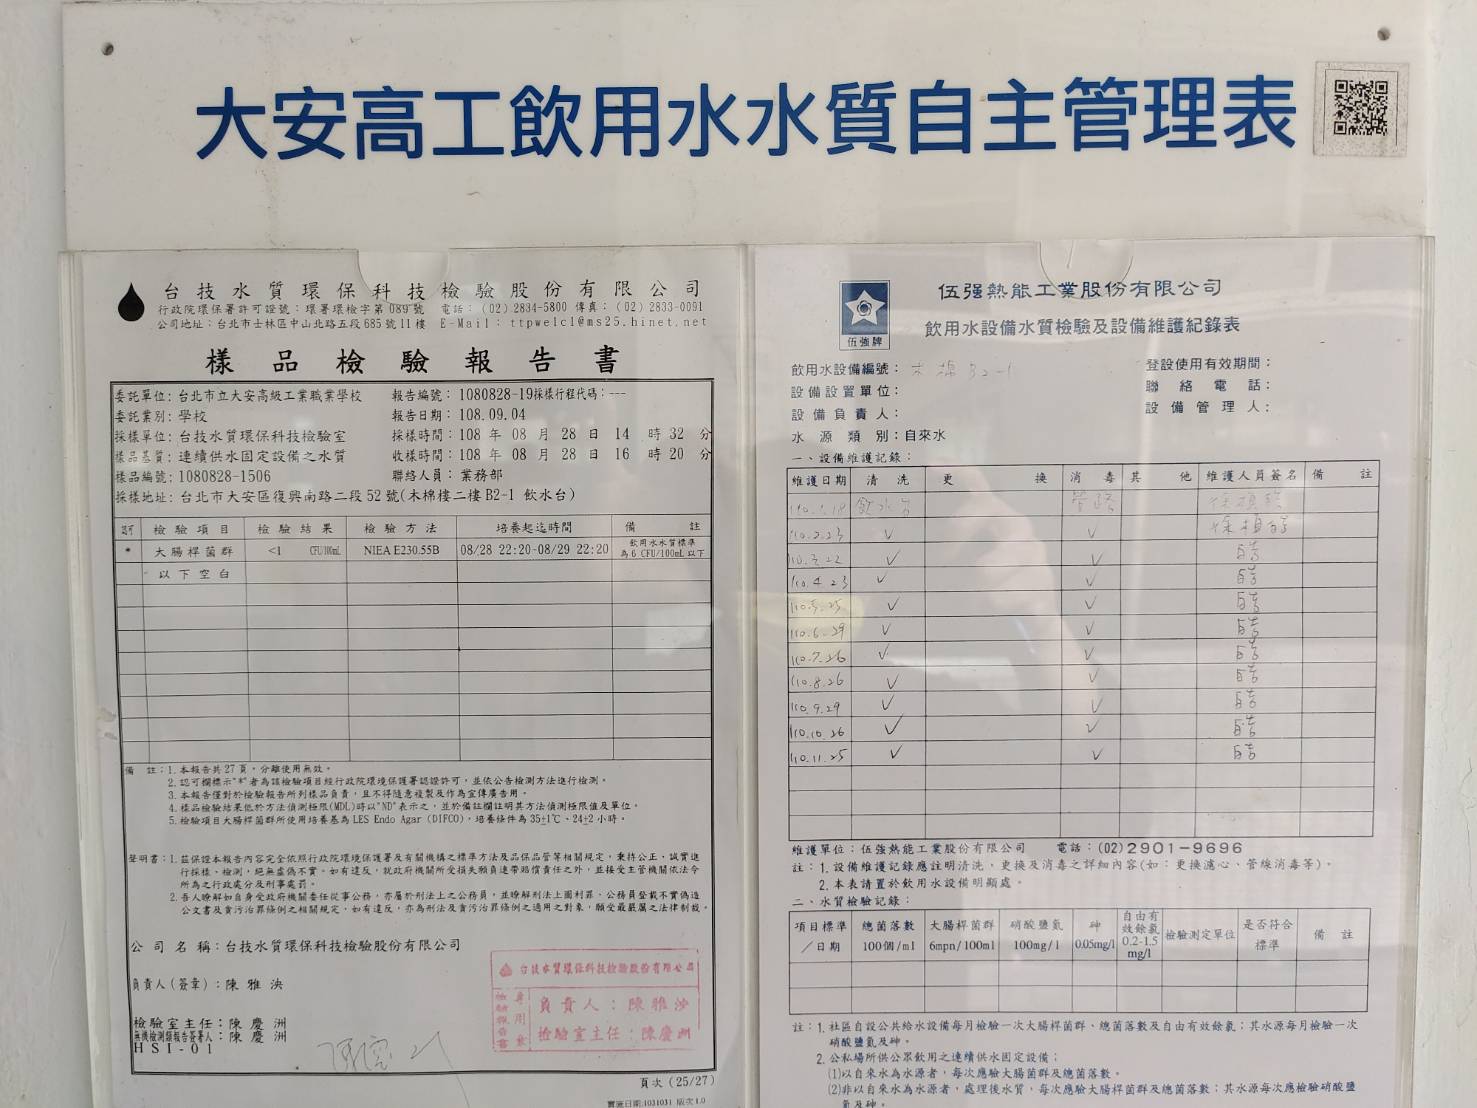 大安高工飲用水水質自主管理表
台技水質環保科技檢驗股份有限公司
行政院環保署許可證號：環署環檢字第089號 電話：(02)2834-5800 傳真：(02)2833-0091
公司地址：台北市士林區中山北路五段685號11樓 E-Mail：ttpwelcl@ms25.hinet.net
樣品檢驗報告書
委託單位：台北市立大安高級工業職業學校 報告編號：1080828-19採樣行程代碼：---
委託業別：學校 報告日期：108.09.04
採樣單位：台技水質環保科技檢驗室 採樣時間：108 年 08 月 28 日 14 時 32 分
樣品基質：連續供水固定設備之水質 收樣時間：108 年 08 月 28 日 16 時 20 分
樣品編號：1080828-1506 聯絡人員：業務部
採樣地址：台北市大安區復興南路二段52號(木棉樓二樓B2-1 飲水台)
檢驗項目 檢驗結果 檢驗方法 培養起迄時間 備註
* 大腸桿菌群 <1 CFU/100mL NIEA E230.55B 08/28 22:20-08/29 22:20 飲用水水質標準
為6 CFU/100mL以下
以下空白
備註：1.本報告共27頁，分離使用無效。
2.認可欄標示"*"者為該檢驗項目經行政院環境保護署認證許可，並依公告檢測方法進行檢測。
3.本報告僅對於檢驗報告所列樣品負責，且不得隨意複製及作為宣傳廣告用。
4.樣品檢驗結果低於方法偵測極限(MDL)時以"ND"表示之，並於備註欄註明其方法偵測極限值及單位。
5.檢驗項目大腸桿菌群所使用培養基為LES Endo Agar (DIFCO)，培養條件為35±1℃、24±2小時。
聲明書：1.茲保證本報告內容完全依照行政院環境保護署及有關機構之標準方法及品保品管等相關規定，秉持公正、誠實進
行採樣、檢測，絕無虛偽不實。如有違反，就政府機關所受損失願負連帶賠償責任之外，並接受主管機關依法令
所為之行政處分及刑事處罰。
2.吾人瞭解如自身受政府機關委任從事公務，亦屬於刑法上之公務員，並瞭解刑法上圖利罪、公務員登載不實偽造
公文書及貪污治罪條例之相關規定，如有違反，亦為刑法及貪污治罪條例之適用之對象，願受最嚴厲之法律制裁。
公司名稱：台技水質環保科技檢驗股份有限公司
負責人(簽章)：陳雅泱
檢驗室主任：陳慶洲
無機檢測類報告簽署人：陳慶洲
HSI-01
台技水質環保科技檢驗股份有限公司
檢驗報告書
專用章
負責人：陳雅泱
檢驗室主任：陳慶洲
頁次 (25/27)
實施日期:1031031 版次1.0
伍強牌
伍强熱能工業股份有限公司
飲用水設備水質檢驗及設備維護紀錄表
飲用水設備編號：木棉B2-1 登設使用有效期間：
設備設置單位： 聯絡電話：
設備負責人： 設備管理人：
水源類別：自來水
一、設備維護記錄：
維護日期 清洗 更換 消毒 其他 維護人員簽名 備註
110.1.18 飲水台 管路
110.2.23 ✓ ✓
110.3.22 ✓ ✓
110.4.23 ✓ ✓
110.5.25 ✓ ✓
110.6.29 ✓ ✓
110.7.26 ✓ ✓
110.8.26 ✓ ✓
110.9.29 ✓ ✓
110.10.26 ✓ ✓
110.11.25 ✓ ✓
維護單位：伍强熱能工業股份有限公司 電話：(02)2901-9696
註：1.設備維護記錄應註明清洗、更換及消毒之詳細內容(如：更換濾心、管線消毒等)。
2.本表請置於飲用水設備明顯處。
二、水質檢驗記錄：
項目標準／日期 總菌落數 100個/ml 大腸桿菌群 6mpn/100ml 硝酸鹽氮 100mg/l 砷 0.05mg/l 自由有效餘氯 0.2-1.5 mg/l 檢驗測定單位 是否符合標準 備註
註：1.社區自設公共給水設備每月檢驗一次大腸桿菌群、總菌落數及自由有效餘氯；其水源每月檢驗一次
硝酸鹽氮及砷。
2.公私場所供公眾飲用之連續供水固定設備：
(1)以自來水為水源者，每次應驗大腸菌群及總菌落數。
(2)非以自來水為水源者，處理後水質，每次應驗大腸桿菌群及總菌落數；其水源每次應檢驗硝酸鹽
氮及砷。